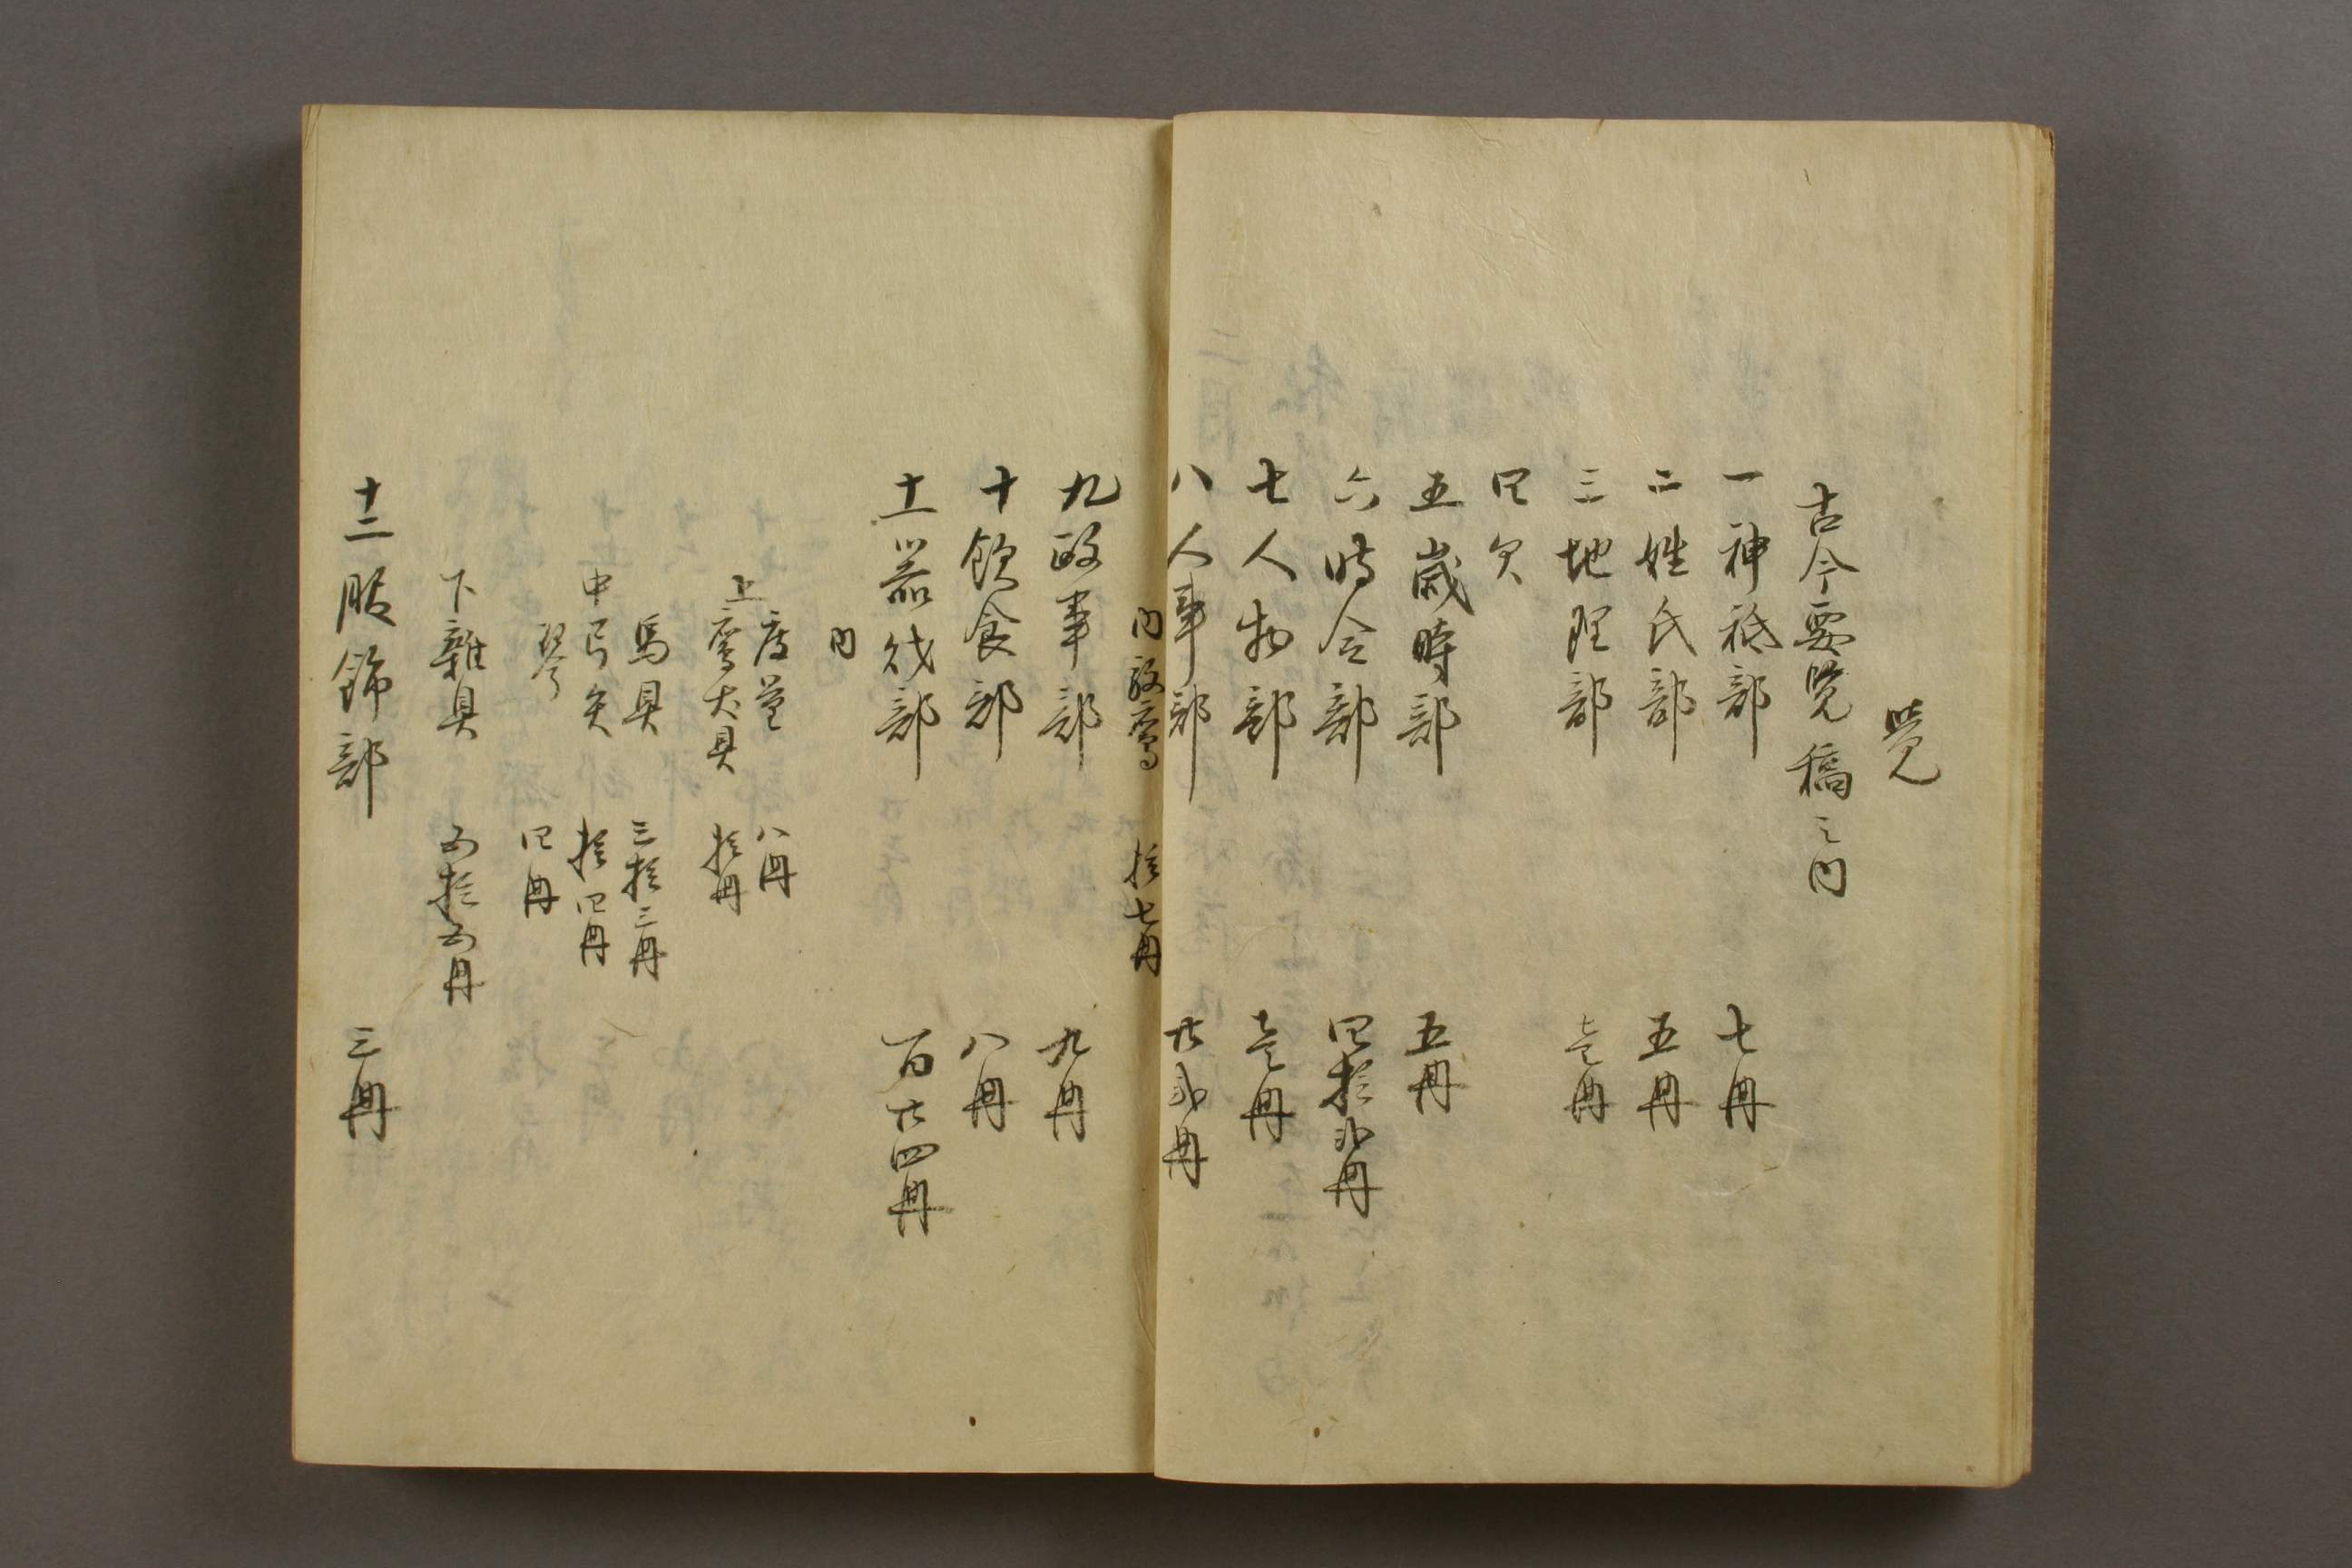 覚
古今要覧稿之内
一神祇部 七冊
二姓氏部 五冊
三地理部 壱冊
四欠
五歳時部 五冊
六時令部 四拾弐冊
七人物部 壱冊
八人事部 廿弐冊
内放鷹 拾七冊
九政事部 九冊
十飲食部 八冊
十一器財部 百廿四冊
内
度量 八冊
上鷹犬具 拾冊
馬具 三拾三冊
中弓矢 拾四冊
琴 四冊
下雑具 五拾五冊
十二服飾部 三冊